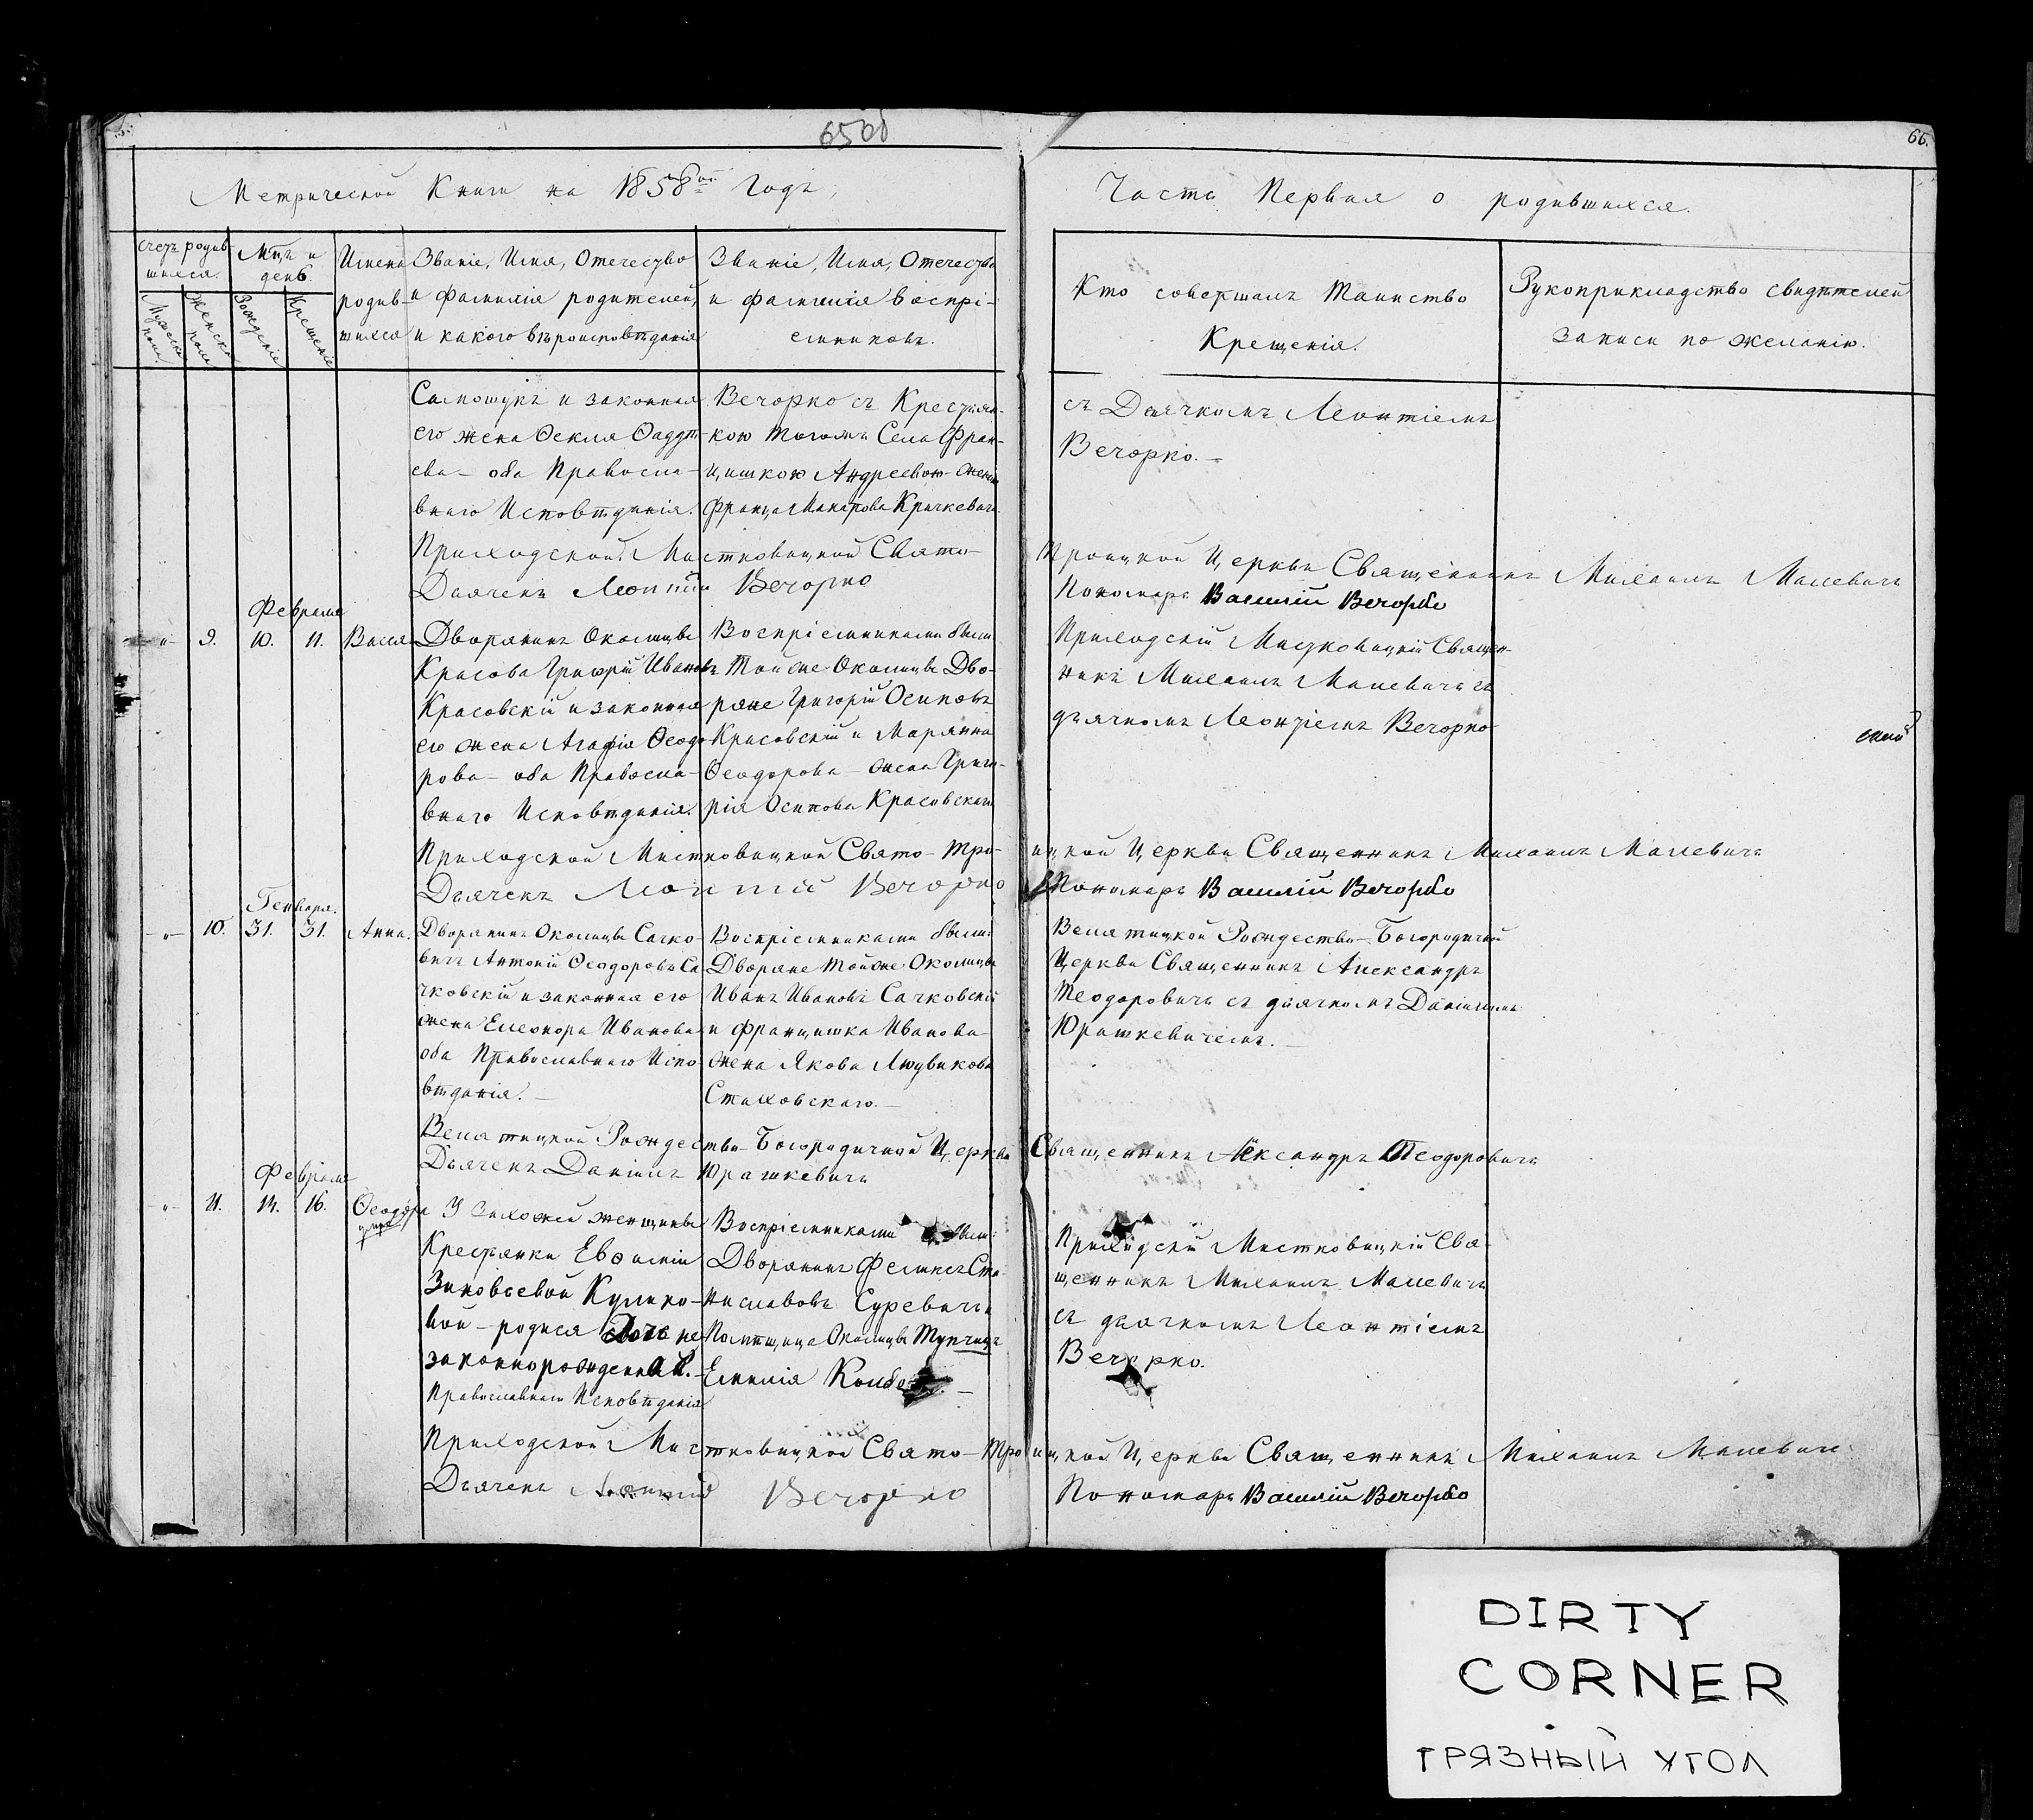 65об
66.
Метрической Книги на 1858ой Годъ,
Часть Первая о родившихся.
счетъ родив-
шихся.
Мужеска пола.
Женска пола
Мцъ и
день.
Рожденіе
Крещеніе
Имена
родив-
шихся
Званіе, Имя, Отечество
и Фамилія родителей,
и какого вѣроисповѣданія
Званіе, Имя, Отечество
и фамилія воспрі-
емниковъ.
Кто совершалъ Таинство
Крещенія.
Рукоприкладство свидѣтелей
записи по желанію.
и законная
его жена Ѳекла Ѳаддѣ-
ева – оба Правосла-
внаго Исповѣданія.
Вечорко съ Крестьян-
кою тогожъ Села Фран-
цишкою Андреевою – женою
Франца Макарова Кричкевича.
съ Дьячкомъ Леонтіемъ
Вечорко. –
Приходской Мистковицкой Свято–
Троицкой Церкви Священникъ Михаилъ Малевичъ
Дьячекъ Леонтій Вечорко
Пономарь Василій Вечорко
Февраля
" 9. 10. 11.
Дворянинъ Околицы
Красова Григорій Ивановъ
Красовскій и законная
его жена Агафія Ѳеодо
рова – оба Правосла-
внаго Исповѣданія.
Воспріемниками были
Тойже Околицы Дво-
ряне Григорій Осиповъ
Красовскій и Марянна
Ѳеодорова – жена Григо-
рія Осипова Красовскаго
Приходскій Мистковицкій Священ-
никъ Михаилъ Малевичъ съ
дьячкомъ Леонтіемъ Вечорко
Приходской Мистковицкой Свято – Тро-
ицкой Церкви Священникъ Михаилъ Малевичъ
Дьячекъ Леонтій Вечорко
Пономарь Василій Вечорко
Генваря.
" 10. 31. 31. Анна.
Дворянинъ Околицы Сачко-
вичъ Антоній Ѳеодоровъ Са-
чковскій и законная его
жена Елеонора Иванова
оба Православнаго Испо
вѣданія. –
Воспріемниками были:
Дворяне тойже Околицы
Иванъ Ивановъ Сачковскій
и Францишка Иванова –
жена Якова Людвикова
Стаховскаго. –
Велятицкой Рождество – Богородичной
Церкви Священникъ Александръ
Теодоровичъ съ дьячкомъ Даніиломъ
Юрашкевичемъ. –
Велятицкой Рождество – Богородичной Церкви
Священникъ Александръ Теодоровичъ
Дьячекъ Даніилъ Юрашкевичъ
Февраля
" 11. 14. 16. Ѳеодора
У захожей женщины
Крестянки
Зиновьевой Кулико-
вой – родися дочь не
законнорожденная. –
Православнаго Исповѣданія
Воспріемниками были:
Дворянинъ Феликсъ Ста-
ниславовъ Суревичъ и
Помѣщица Околицы
Емилія
Приходскій Мистковицкій Свя-
щенникъ Михаилъ Малевичъ
съ дьячкомъ Леонтіемъ
Вечорко.
Приходской Мистковицкой Свято – Тро
ицкой Церкви Священникъ Михаилъ Малевичъ
Дьячекъ Леонтій Вечорко
Пономарь Василій Вечорко
DIRTY
CORNER
ГРЯЗНЫЙ УГОЛ